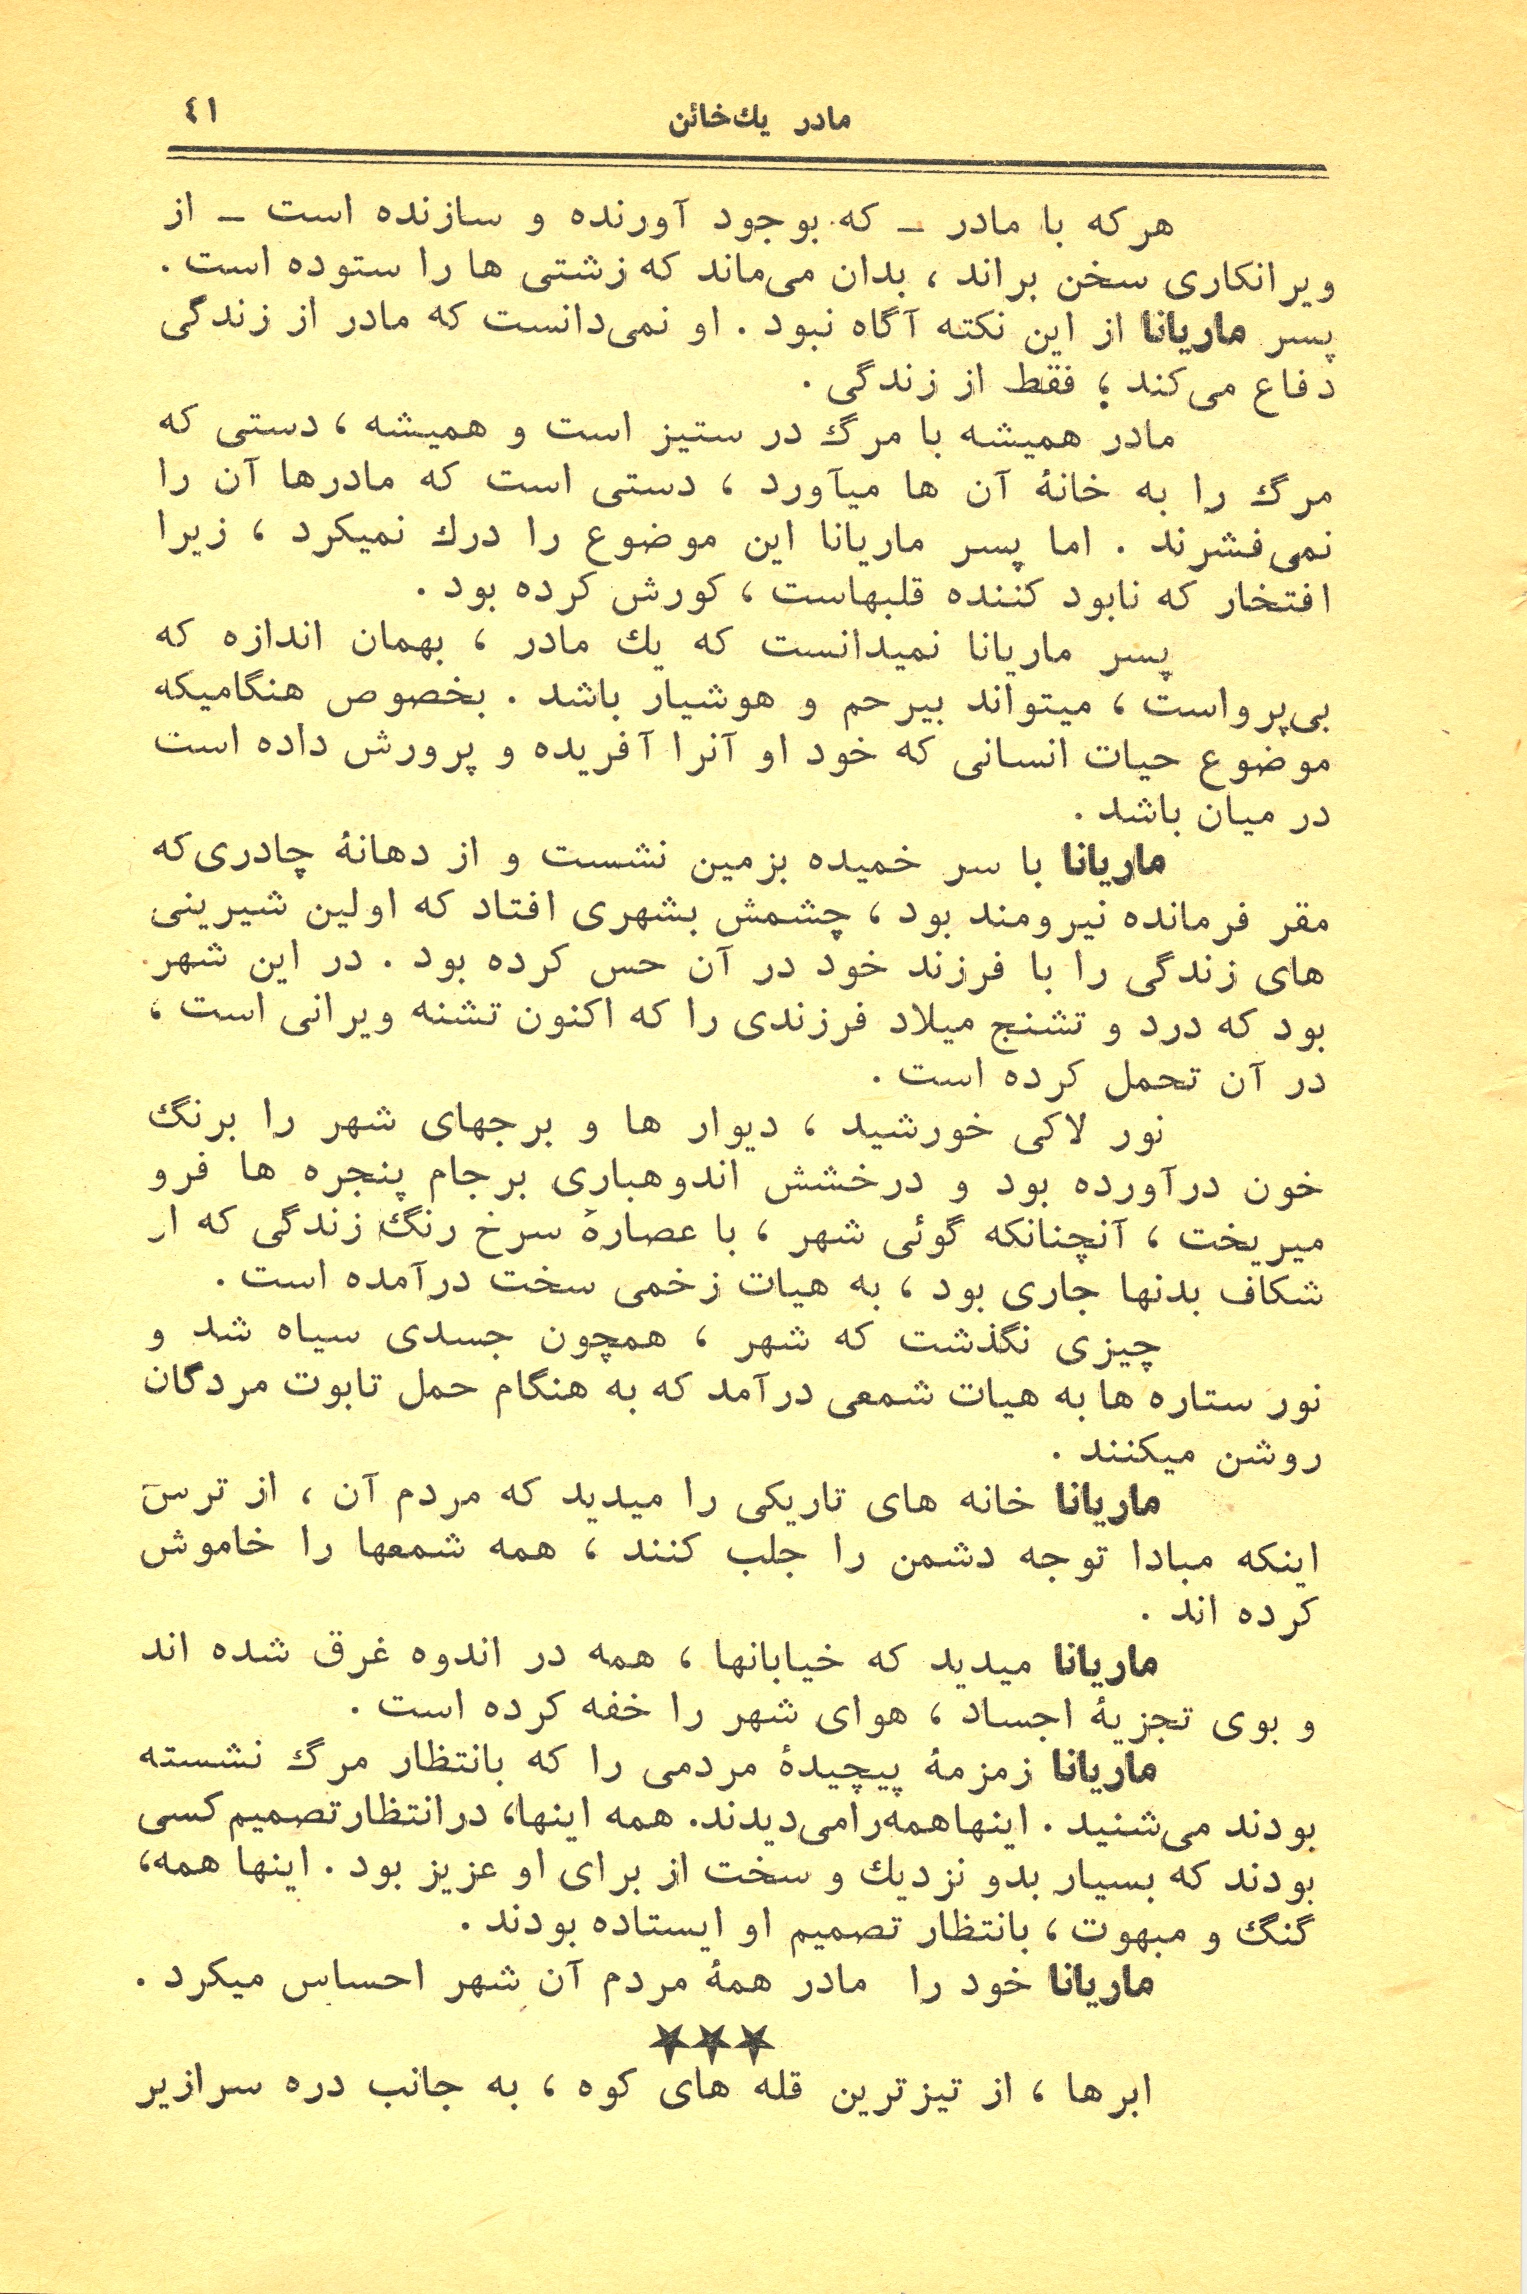 مادر یك‌خائن ٤١
هرکه با مادر ــ که بوجود آورنده و سازنده است ــ از
ویرانکاری سخن براند ، بدان می‌ماند که زشتی ها را ستوده است .
پسر ماریانا از این نکته آگاه نبود . او نمی‌دانست که مادر از زندگی
دفاع می‌کند ؛ فقط از زندگی .
مادر همیشه با مرگ در ستیز است و همیشه ، دستی که
مرگ را به خانهٔ آن ها میآورد ، دستی است که مادرها آن را
نمی‌فشرند . اما پسر ماریانا این موضوع را درك نمیکرد ، زیرا
افتخار که نابود کننده قلبهاست ، کورش کرده بود .
پسر ماریانا نمیدانست که یك مادر ، بهمان اندازه که
بی‌پرواست ، میتواند بیرحم و هوشیار باشد . بخصوص هنگامیکه
موضوع حیات انسانی که خود او آنرا آفریده و پرورش داده است
در میان باشد .
ماریانا با سر خمیده بزمین نشست و از دهانهٔ چادری‌که
مقر فرمانده نیرومند بود ، چشمش بشهری افتاد که اولین شیرینی
های زندگی را با فرزند خود در آن حس کرده بود . در این شهر
بود که درد و تشنج میلاد فرزندی را که اکنون تشنه ویرانی است ،
در آن تحمل کرده است .
نور لاکی خورشید ، دیوار ها و برجهای شهر را برنگ
خون درآورده بود و درخشش اندوهباری برجام پنجره ها فرو
میریخت ، آنچنانکه گوئی شهر ، با عصارهٔ سرخ رنگ زندگی که از
شکاف بدنها جاری بود ، به هیات زخمی سخت درآمده است .
چیزی نگذشت که شهر ، همچون جسدی سیاه شد و
نور ستاره ها به هیات شمعی درآمد که به هنگام حمل تابوت مردگان
روشن میکنند .
ماریانا خانه های تاریکی را میدید که مردم آن ، از ترس
اینکه مبادا توجه دشمن را جلب کنند ، همه شمعها را خاموش
کرده اند .
ماریانا میدید که خیابانها ، همه در اندوه غرق شده اند
و بوی تجزیهٔ اجساد ، هوای شهر را خفه کرده است .
ماریانا زمزمهٔ پیچیدهٔ مردمی را که بانتظار مرگ نشسته
بودند می‌شنید . اینهاهمه‌رامی‌دیدند. همه اینها، درانتظارتصمیم کسی
بودند که بسیار بدو نزدیك و سخت از برای او عزیز بود . اینها همه،
گنگ و مبهوت ، بانتظار تصمیم او ایستاده بودند .
ماریانا خود را مادر همهٔ مردم آن شهر احساس میکرد .
★★★
ابرها ، از تیزترین قله های کوه ، به جانب دره سرازیر